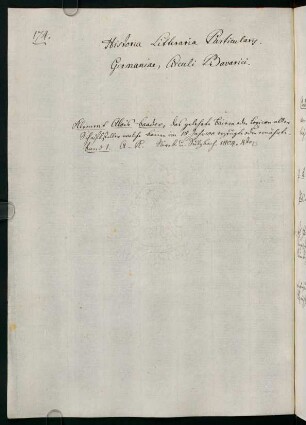 174.
Historia Litteraria Particularis.
Germaniae, Circuli Bavarici.
Klement Alois Baader, das gelehrte Baiern oder Lexicon aller
Schriftsteller welche Baiern im 18 Jahrh. erzeugte oder ernährte.
Band 1. A–K. Nürnb. u. Sulzbach 1804.